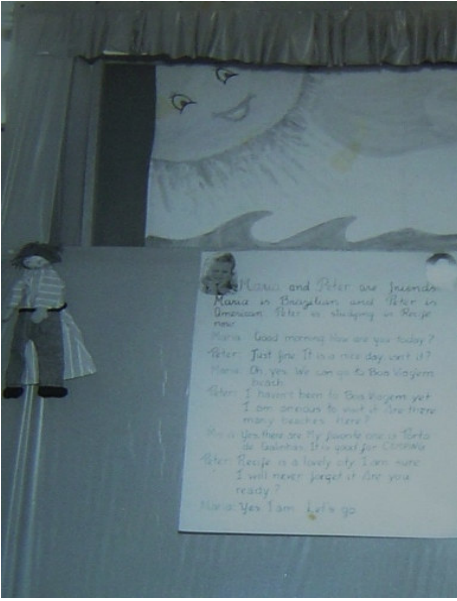 Maria and Peter are friends
Maria is Brazilian and Peter is
American. Peter is studying in Recife
now.
Maria: Good morning How are you today?
Peter: Just fine It is a nice day, isn't it?
Maria: Oh, yes. We can go to Boa Viagem
beach.
Peter: I haven't been to Boa Viagem yet
I am anxious to visit it Are there
many beaches there?
Maria: Yes, there are My favorite one is Porto
de Galinhas. It is good for
Peter: Recife is a lovely city I am sure
I will never forget it Are you
ready?
Maria: Yes I am Let's go